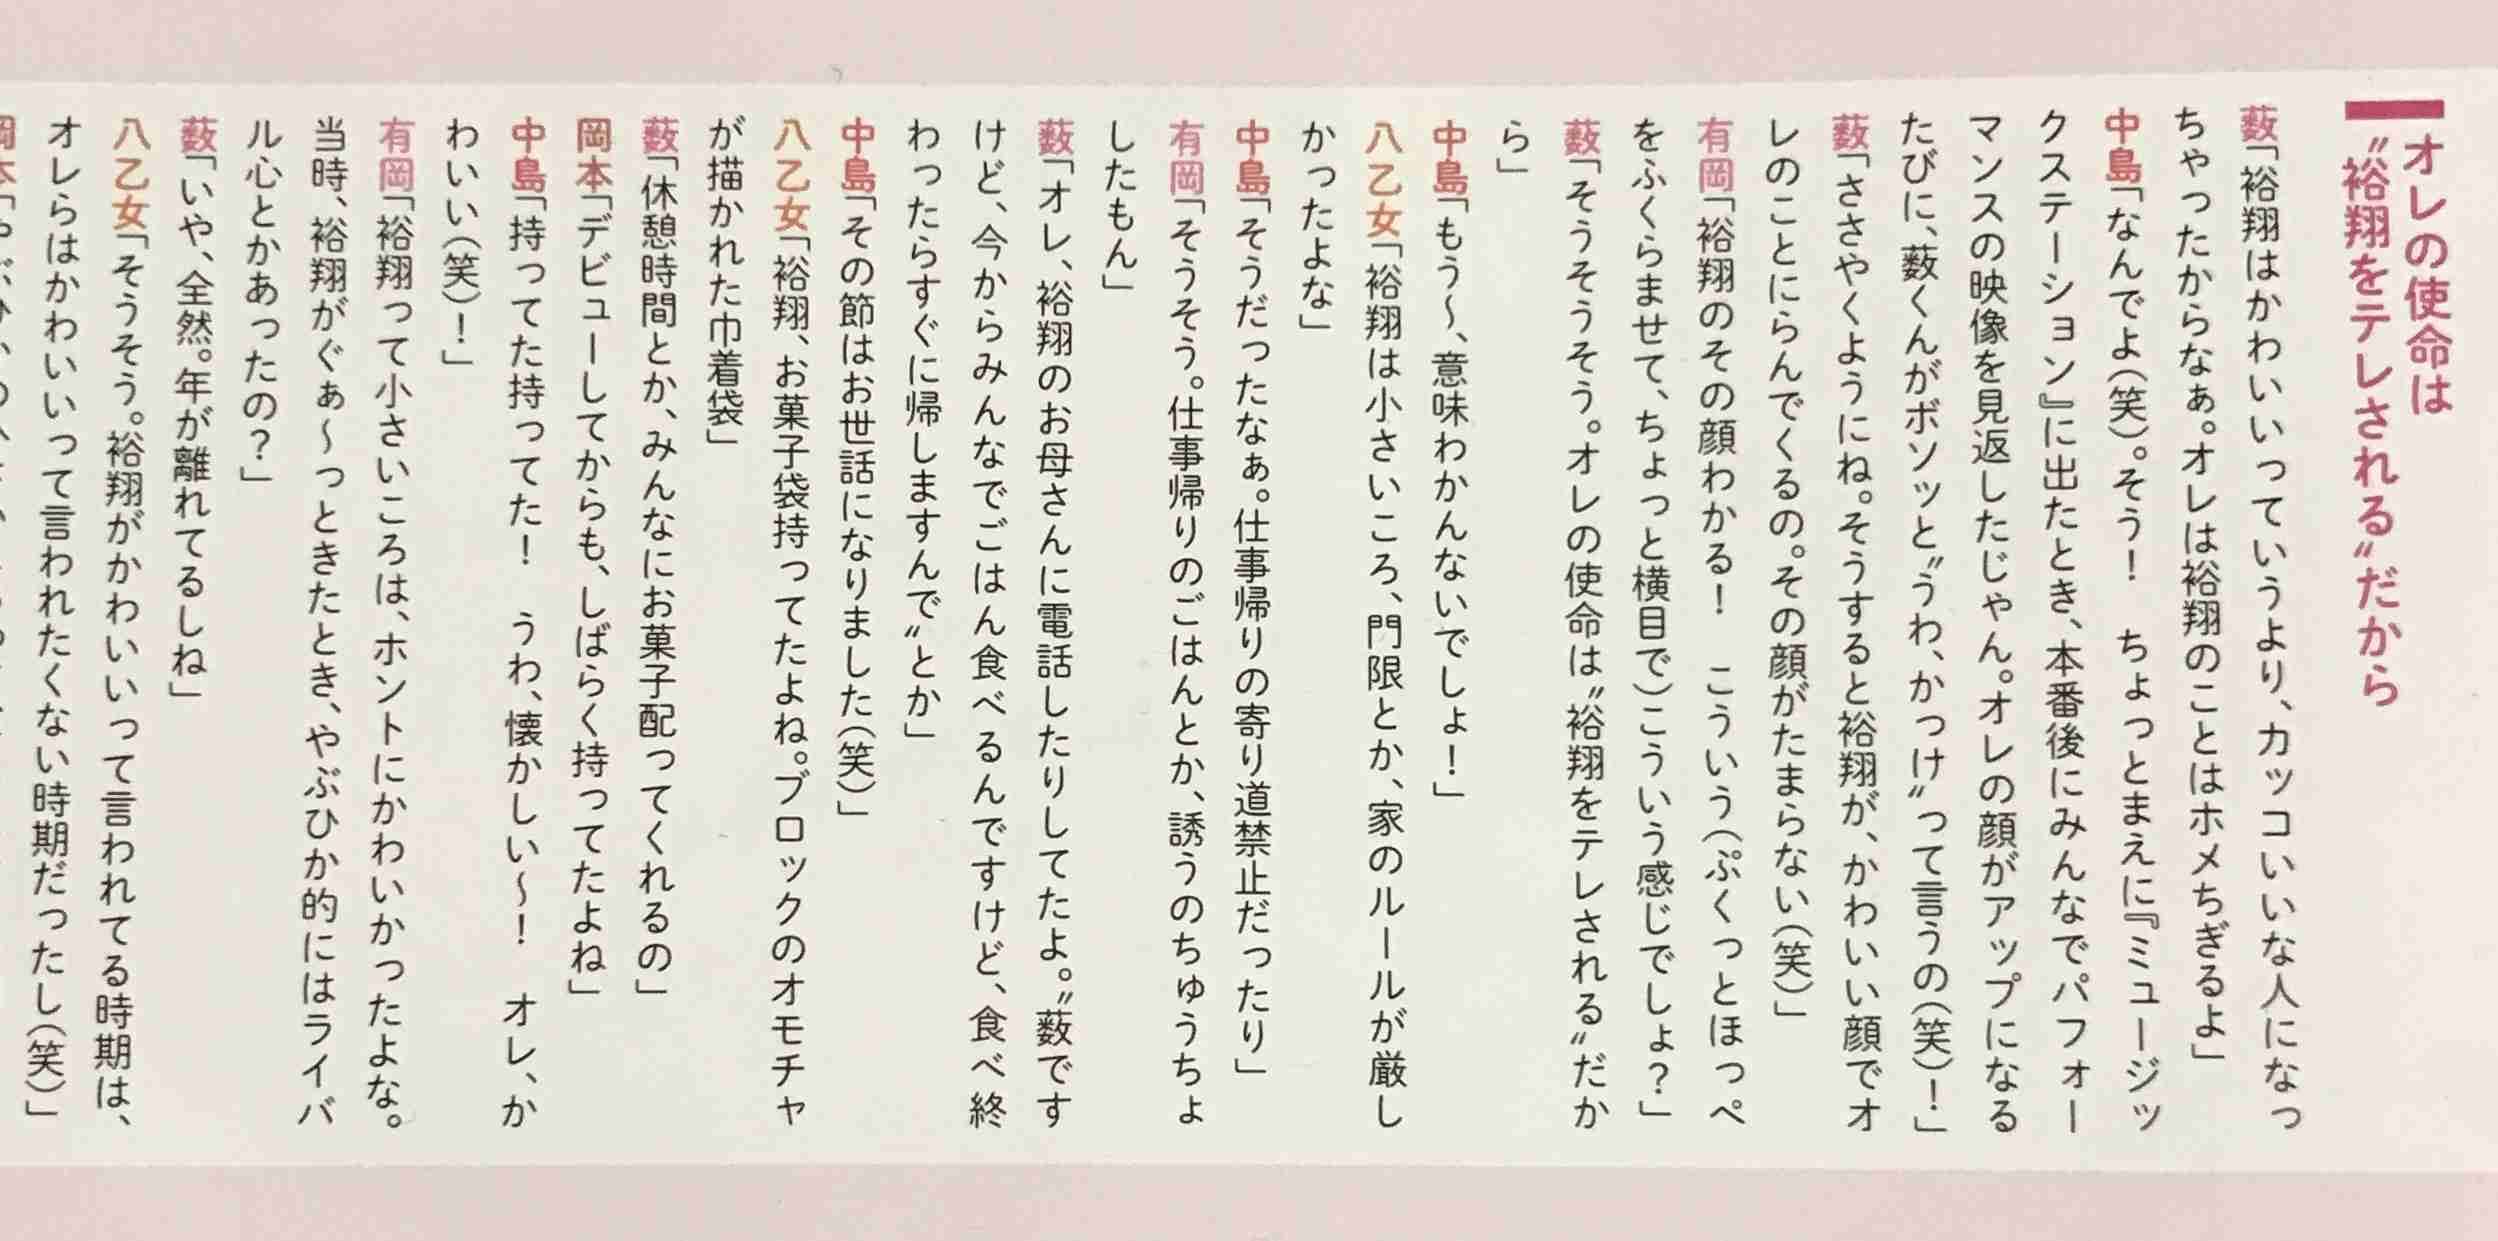 オレの使命は
〝裕翔をテレされる〟だから
薮「裕翔はかわいいっていうより、カッコいいな人になっ
ちゃったからなぁ。オレは裕翔のことはホメちぎるよ」
中島「なんでよ(笑)。そう！　ちょっとまえに『ミュージッ
クステーション』に出たとき、本番後にみんなでパフォー
マンスの映像を見返したじゃん。オレの顔がアップになる
たびに、薮くんがボソッと〝うわ、かっけ〟って言うの(笑)！」
薮「ささやくようにね。そうすると裕翔が、かわいい顔でオ
レのことにらんでくるの。その顔がたまらない(笑)」
有岡「裕翔のその顔わかる！　こういう(ぷくっとほっぺ
をふくらませて、ちょっと横目で)こういう感じでしょ？」
薮「そうそうそう。オレの使命は〝裕翔をテレされる〟だか
ら」
中島「もう〜、意味わかんないでしょ！」
八乙女「裕翔は小さいころ、門限とか、家のルールが厳し
かったよな」
中島「そうだったなぁ。仕事帰りの寄り道禁止だったり」
有岡「そうそう。仕事帰りのごはんとか、誘うのちゅうちょ
したもん」
薮「オレ、裕翔のお母さんに電話したりしてたよ。〝薮です
けど、今からみんなでごはん食べるんですけど、食べ終
わったらすぐに帰しますんで〟とか」
中島「その節はお世話になりました(笑)」
八乙女「裕翔、お菓子袋持ってたよね。ブロックのオモチャ
が描かれた巾着袋」
薮「休憩時間とか、みんなにお菓子配ってくれるの」
岡本「デビューしてからも、しばらく持ってたよね」
中島「持ってた持ってた！　うわ、懐かしい〜！　オレ、か
わいい(笑)！」
有岡「裕翔って小さいころは、ホントにかわいかったよな。
当時、裕翔がぐぁ〜っときたとき、やぶひか的にはライバ
ル心とかあったの？」
薮「いや、全然。年が離れてるしね」
八乙女「そうそう。裕翔がかわいいって言われてる時期は、
オレらはかわいいって言われたくない時期だったし(笑)」
岡本「やぶひか